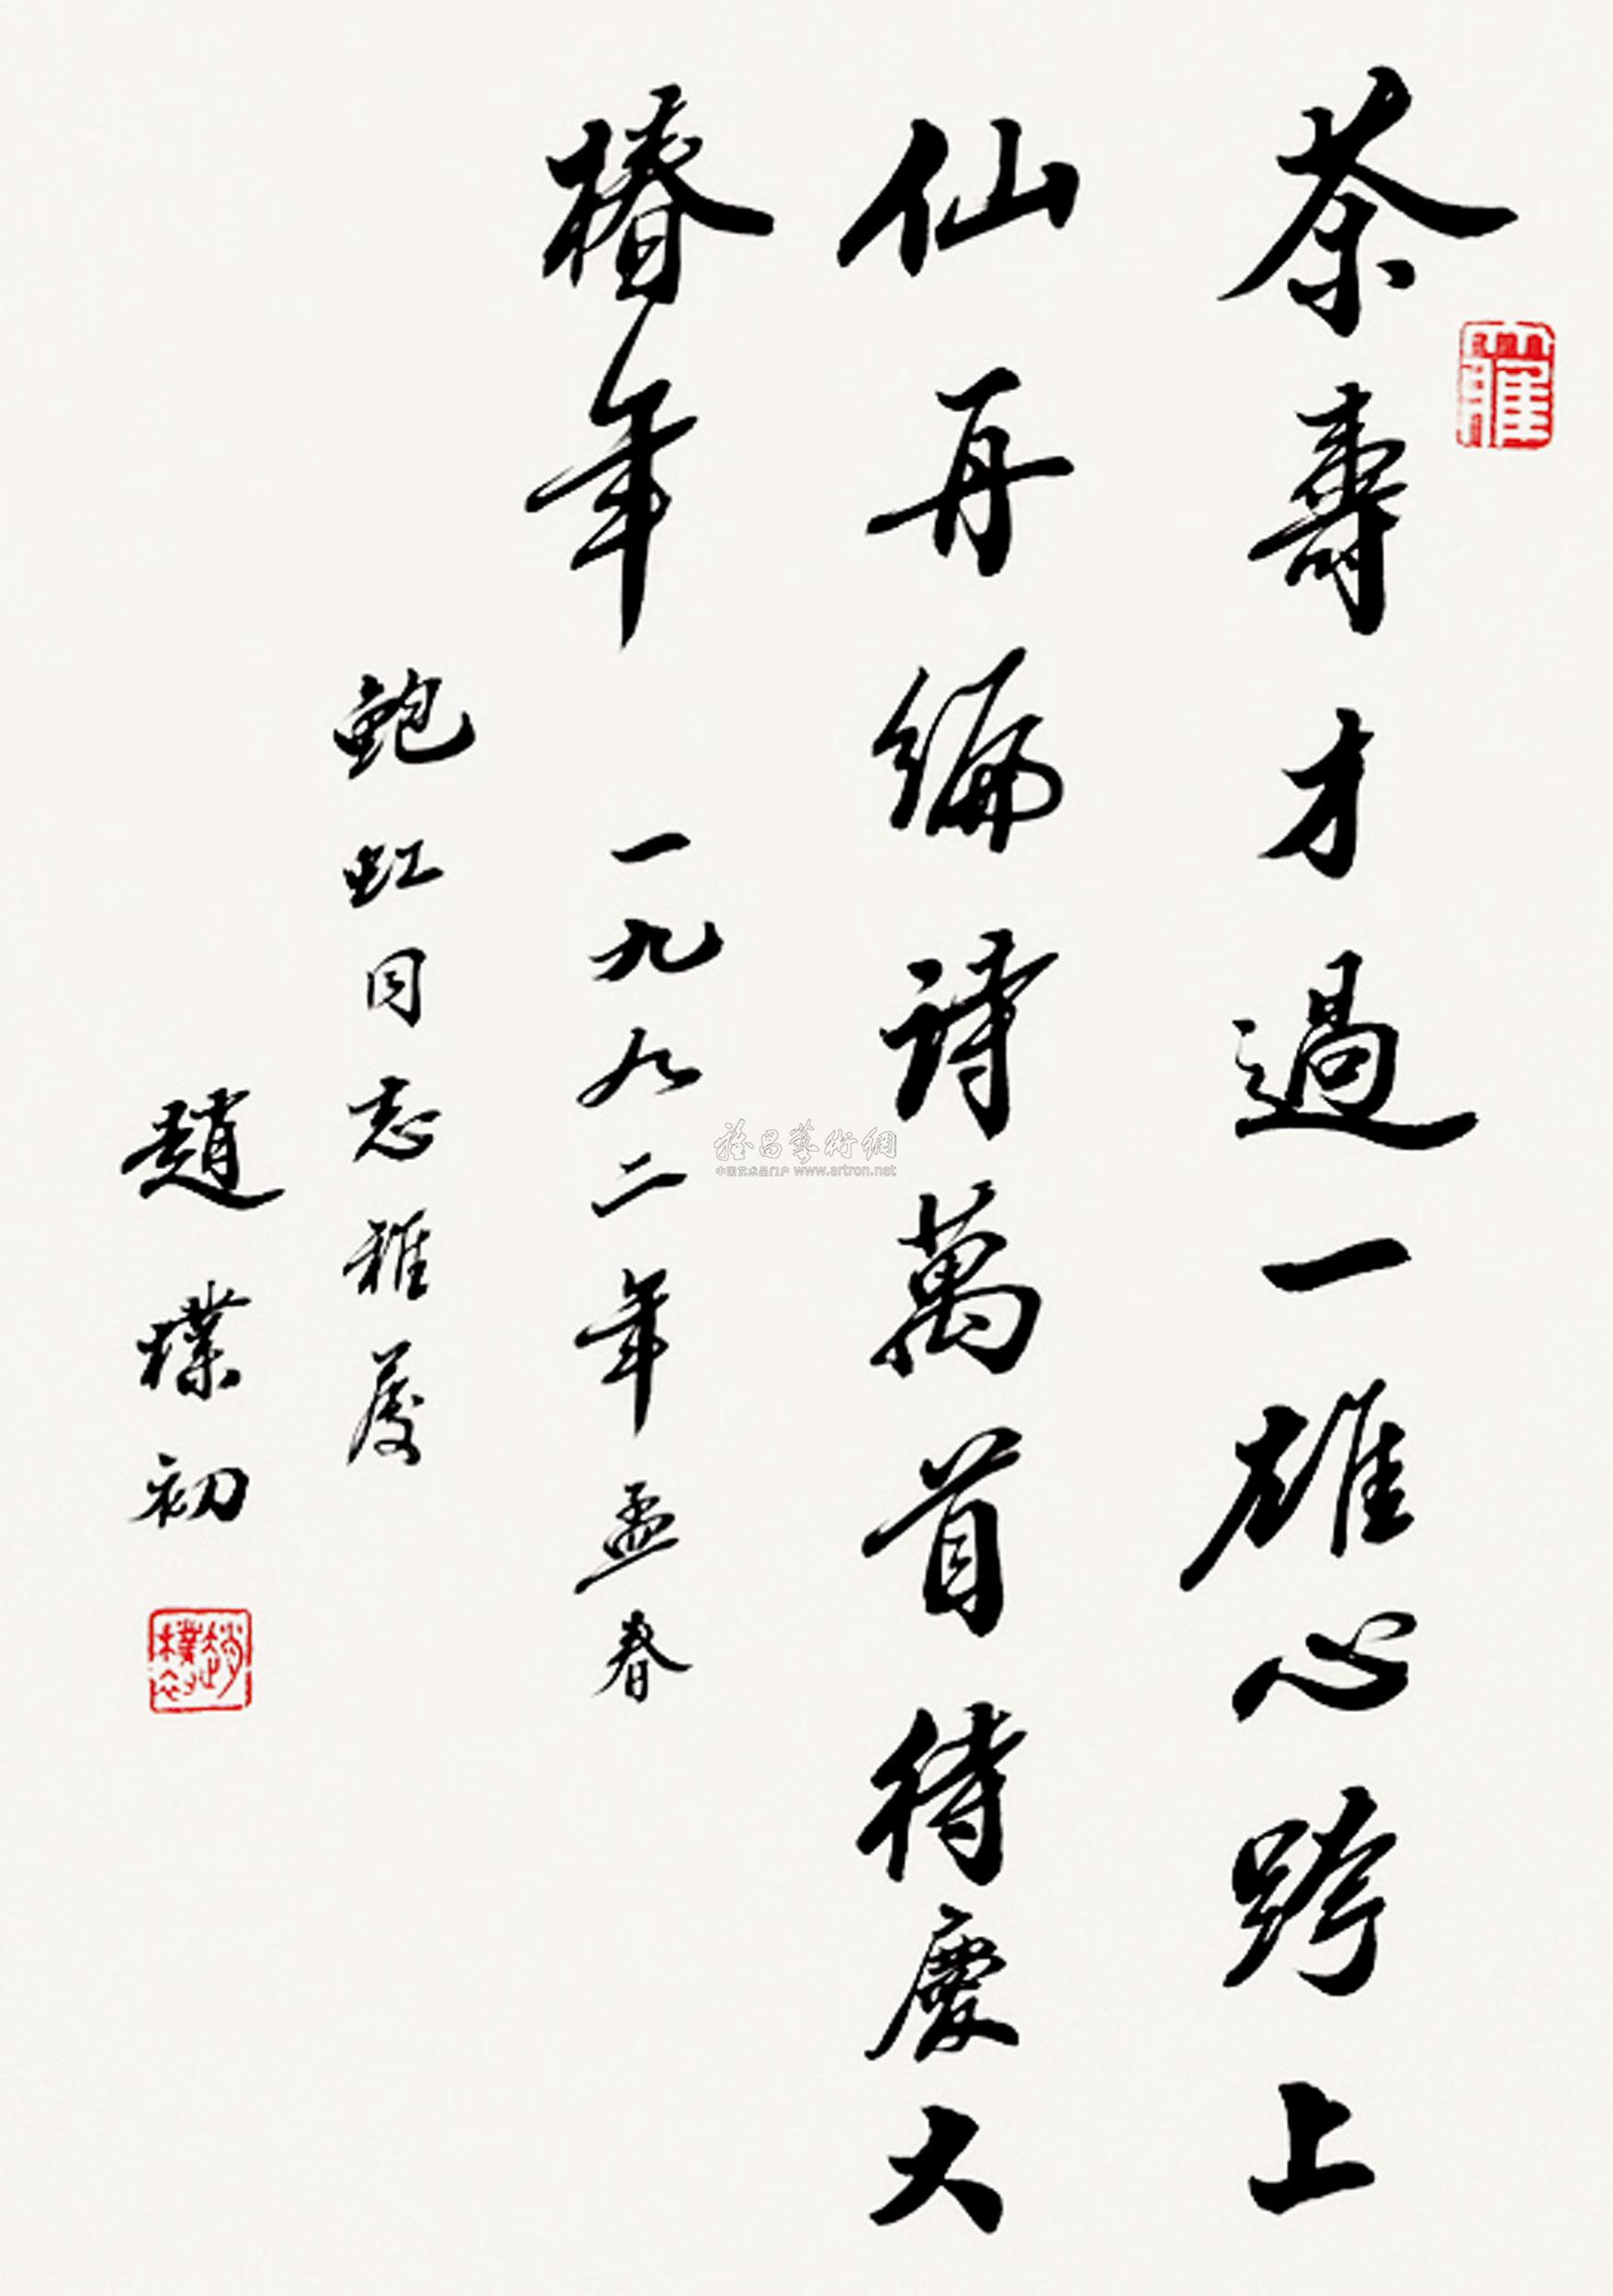 茶壽才過一雄心跨上
仙再編诗萬首待慶大
椿年
一九九二年孟春
鲍虹同志雅屬
趙樸初
雅昌藝術網
中国艺术品门户 www.artron.net